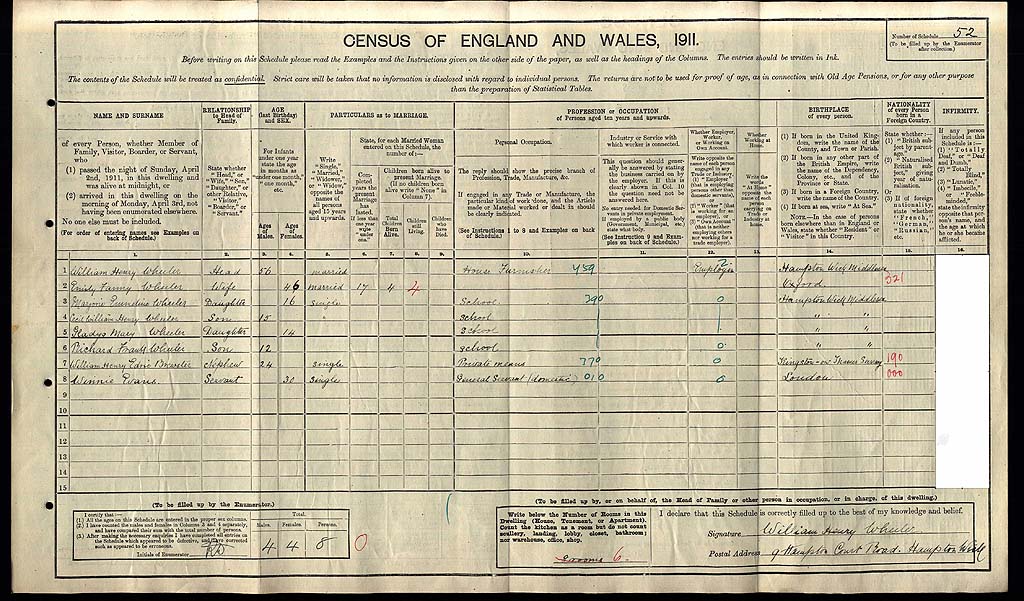 Number of Schedule 52
(To be filled up by the Enumerator after collection)
CENSUS OF ENGLAND AND WALES, 1911.
Before writing on this Schedule please read the Examples and the Instructions given on the other side of the paper, as well as the headings of the Columns. The entries should be written in Ink.
The contents of the Schedule will be treated as confidential. Strict care will be taken that no information is disclosed with regard to individual persons. The returns are not to be used for proof of age, as in connection with Old Age Pensions, or for any other purpose
than the preparation of Statistical Tables.
NAME AND SURNAME
RELATIONSHIP to Head of Family.
AGE (last Birthday) and SEX.
PARTICULARS as to MARRIAGE.
PROFESSION or OCCUPATION of Persons aged ten years and upwards.
BIRTHPLACE of every person.
NATIONALITY of every Person born in a Foreign Country.
INFIRMITY.
of every Person, whether Member of Family, Visitor, Boarder, or Servant, who
(1) passed the night of Sunday, April 2nd, 1911, in this dwelling and was alive at midnight, or
(2) arrived in this dwelling on the morning of Monday, April 3rd, not having been enumerated elsewhere.
No one else must be included.
(For order of entering names see Examples on back of Schedule.)
State whether "Head," or "Wife," "Son," "Daughter," or other Relative, "Visitor," "Boarder," or "Servant."
For Infants under one year state the age in months as "under one month," "one month," etc.
Ages of Males.
Ages of Females.
Write "Single," "Married," "Widower," or "Widow," opposite the names of all persons aged 15 years and upwards.
State, for each Married Woman entered on this Schedule, the number of:—
Completed years the present Marriage has lasted. If less than one year write "under one."
Children born alive to present Marriage. (If no children born alive write "None" in Column 7).
Total Children Born Alive.
Children still Living.
Children who have Died.
Personal Occupation.
The reply should show the precise branch of Profession, Trade, Manufacture, &c.
If engaged in any Trade or Manufacture, the particular kind of work done, and the Article made or Material worked or dealt in should be clearly indicated.
(See Instructions 1 to 8 and Examples on back of Schedule.)
Industry or Service with which worker is connected.
This question should generally be answered by stating the business carried on by the employer. If this is clearly shown in Col. 10 the question need not be answered here.
No entry needed for Domestic Servants in private employment. If employed by a public body (Government, Municipal, etc.) state what body.
(See Instruction 9 and Examples on back of Schedule.)
Whether Employer, Worker, or Working on Own Account.
Whether Working at Home.
Write the words "At Home" opposite the name of each person carrying on Trade or Industry at home.
(1) If born in the United Kingdom, write the name of the County, and Town or Parish.
(2) If born in any other part of the British Empire, write the name of the Dependency, Colony, etc., and of the Province or State.
(3) If born in a Foreign Country, write the name of the Country.
(4) If born at sea, write "At Sea."
NOTE.—In the case of persons born elsewhere than in England or Wales, state whether "Resident" or "Visitor" in this Country.
1. 2. 3. 4. 5. 6. 7. 8. 9. 10. 11. 12. 13. 14. 15. 16.
1 William Henry Wheeler Head 56 married House Furnisher 459 Employer Hampton Wick Middlesex
2 Emily Fanny Wheeler Wife 46 married 17 4 4 Oxford 321
3 Marjorie Wheeler Daughter 16 single School 390 0 Hampton Wick Middlesex
4 Cecil William Henry Wheeler Son 15 School " "
5 Gladys Mary Wheeler Daughter 14 School " "
6 Richard Wheeler Son 12 School 0 " "
7 William Henry Brewster Nephew 24 single Private means 770 0 Kingston-on-Thames Surrey 190
8 Winnie Evans Servant 30 single General Servant (domestic) 010 0 London 000
9
10
11
12
13
14
15
(To be filled up by the Enumerator.)
I certify that:—
(1) All the ages on this Schedule are entered in the proper sex columns.
(2) I have counted the males and females in Columns 3 and 4 separately, and have compared their sum with the total number of persons.
(3) After making the necessary enquiries I have completed all entries on the Schedule which appeared to be defective, and have corrected such as appeared to be erroneous.
Initials of Enumerator
Total.
Males. Females. Persons.
4 4 8 0
(To be filled up by, or on behalf of, the Head of Family or other person in occupation, or in charge, of this dwelling.)
Write below the Number of Rooms in this Dwelling (House, Tenement, or Apartment). Count the kitchen as a room but do not count scullery, landing, lobby, closet, bathroom; nor warehouse, office, shop.
6
I declare that this Schedule is correctly filled up to the best of my knowledge and belief.
Signature William Henry Wheeler
Postal Address 9 Hampton Court Road. Hampton Wick